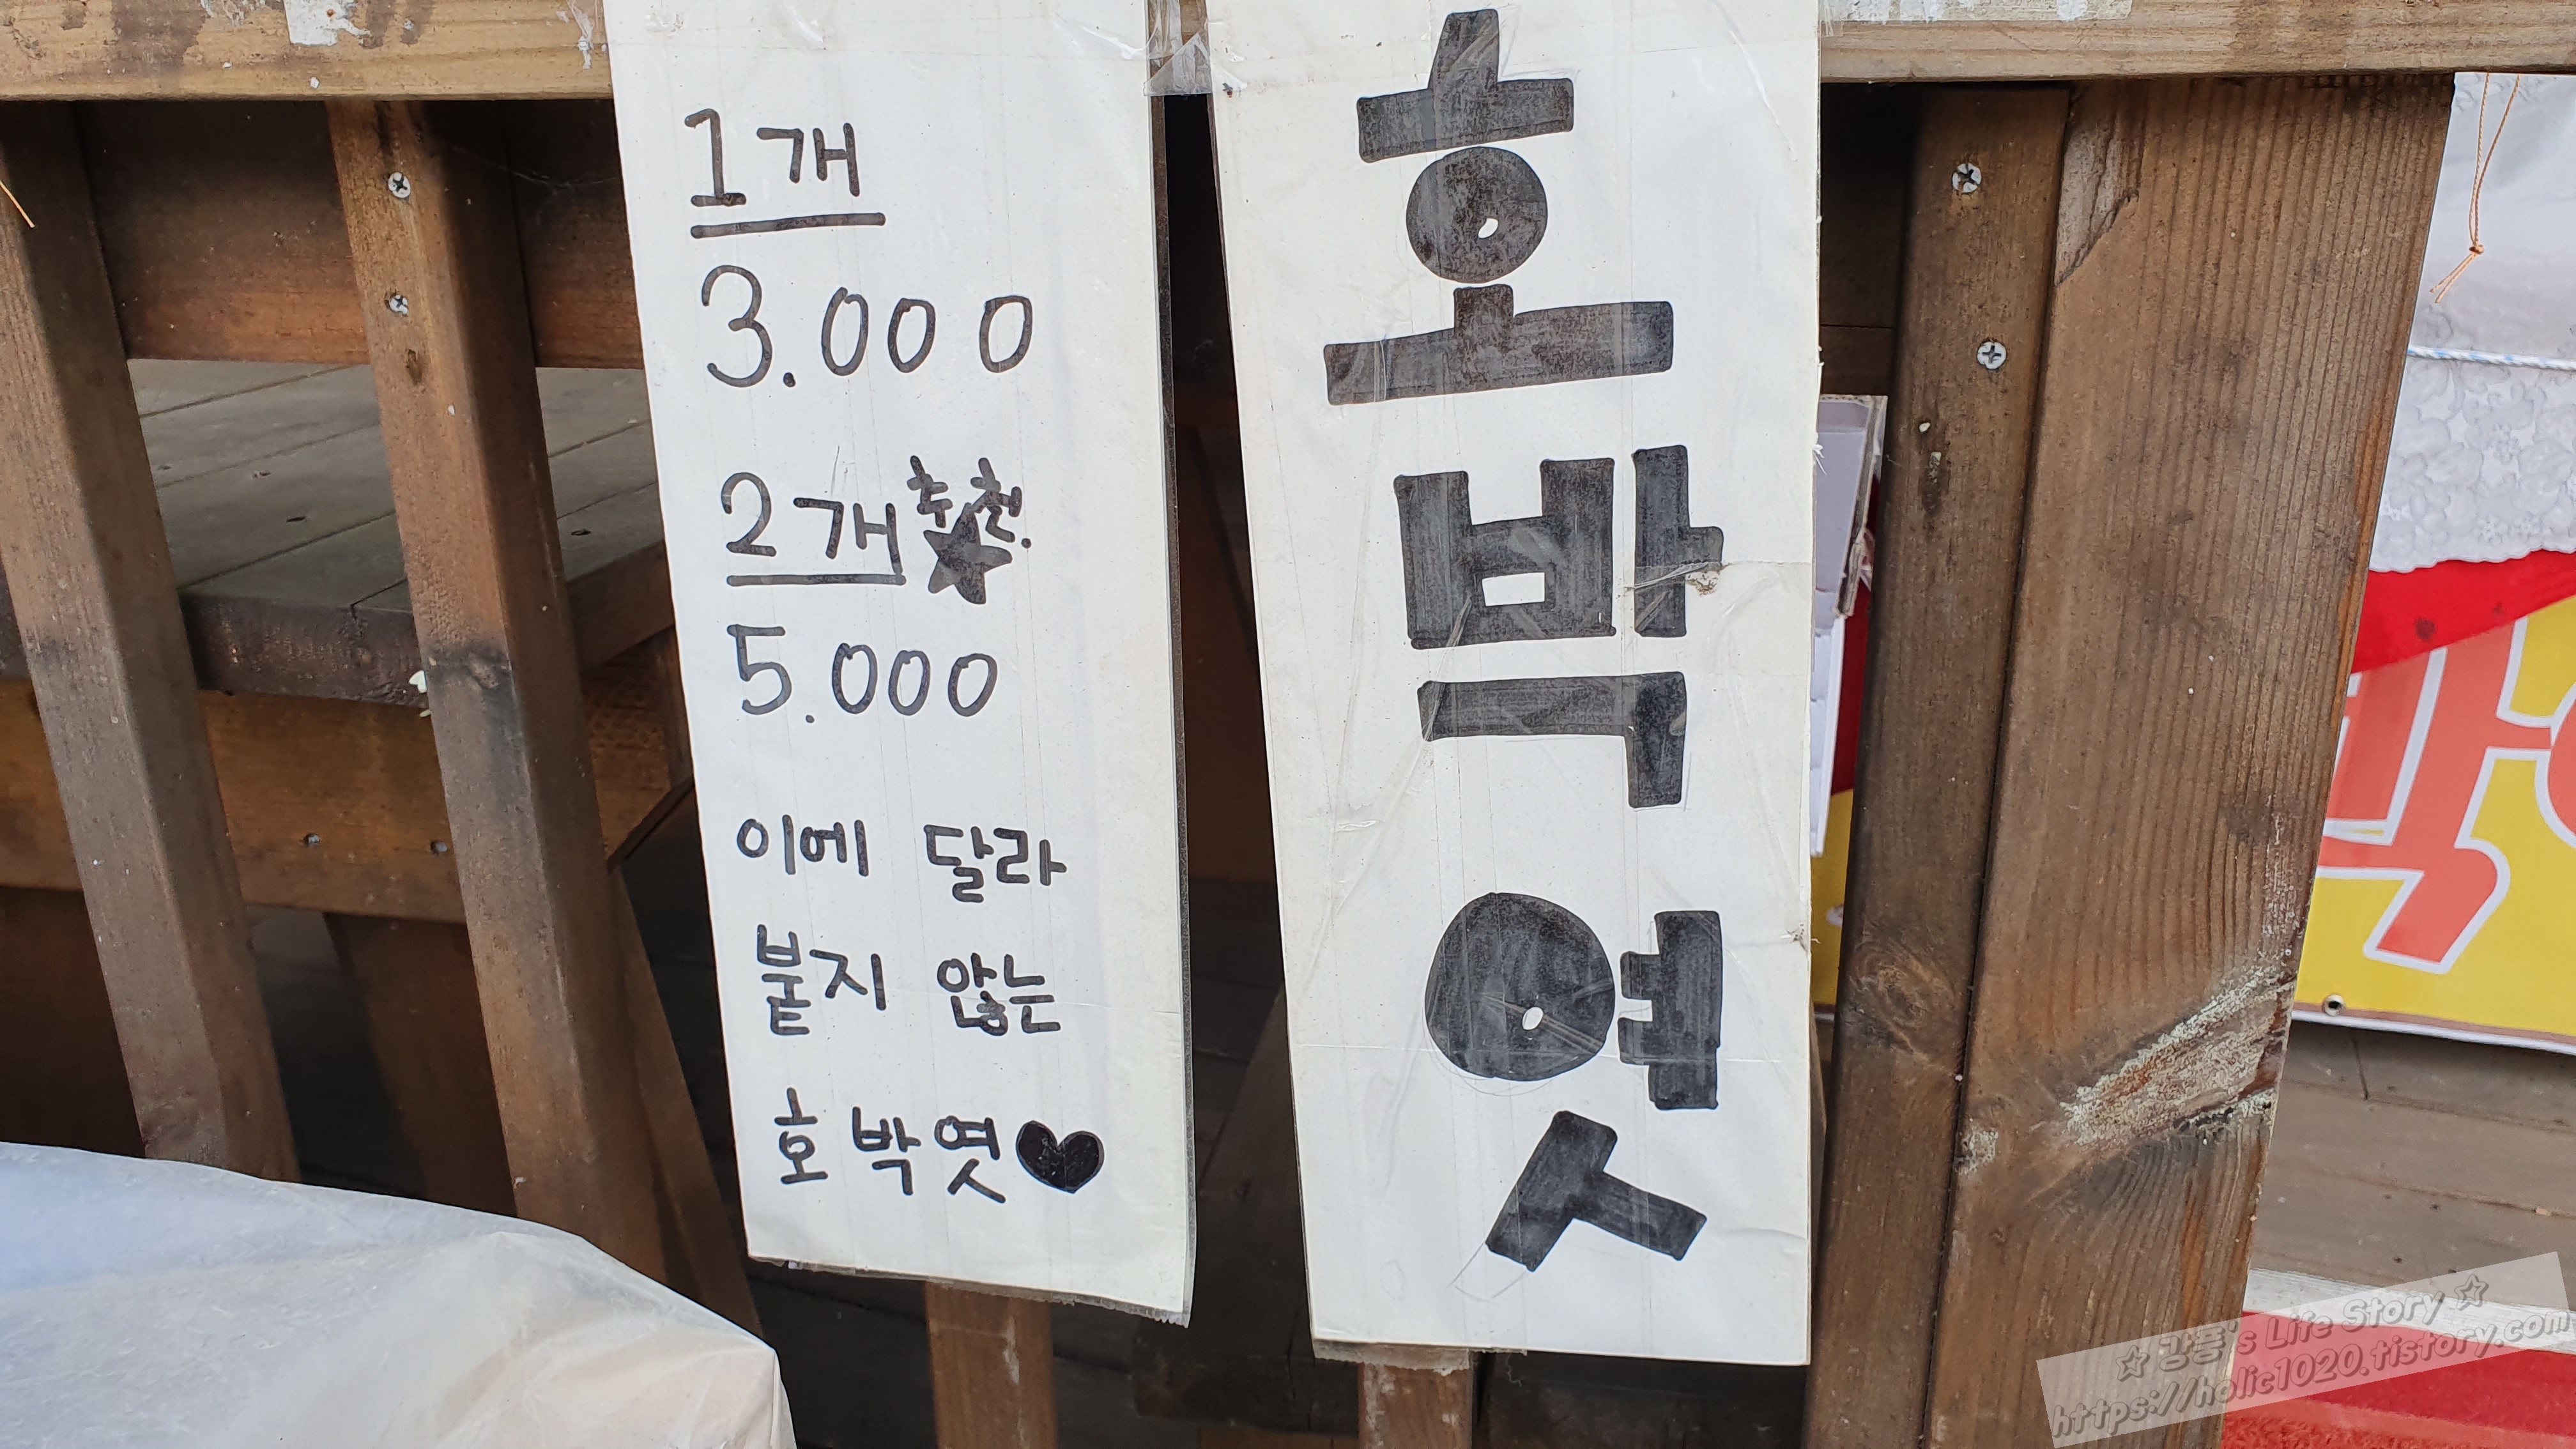 1개
3.000
2개 추천.
5.000
이에 달라
붙지 않는
호박엿
호박엿
☆ 강풍's Life Story ☆
https://holic1020.tistory.com